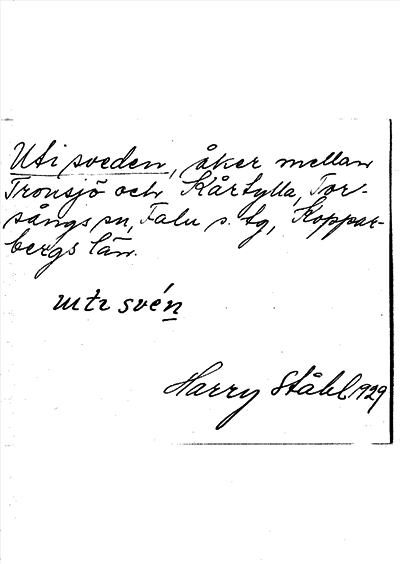 Uti sveden, åker mellan
Tronsjö och Kårtylla, Tor-
sångs sn, Falu s. tg, Koppar-
bergs län.
uti svén
Harry Ståhl 1929